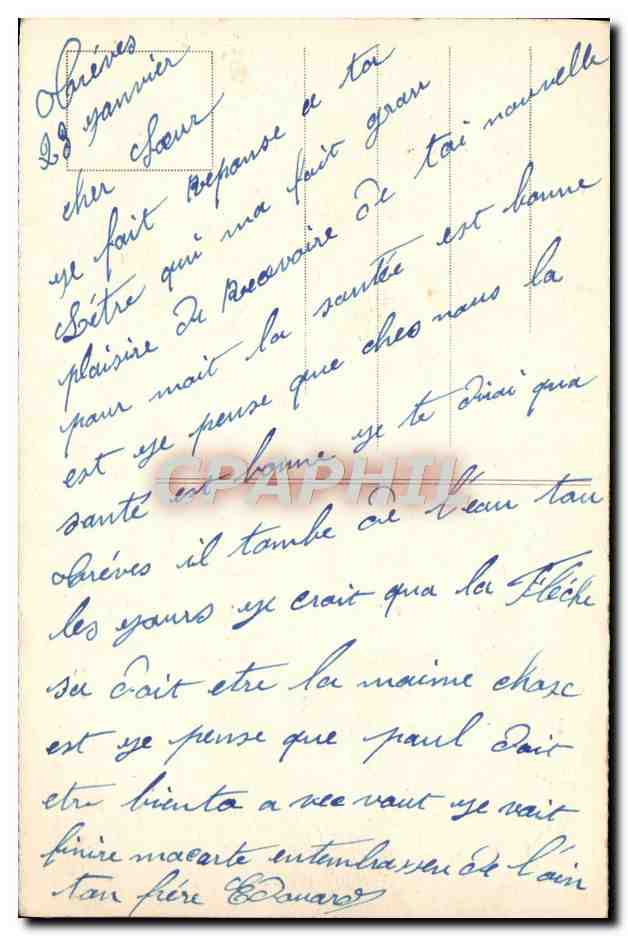 Oréves
23 yanvier
cher Sœur
ye fait Reponse a ta
Létre qui ma fait gran
plaisire de Recevoire de tai nouvelle
pour mait la santée est bonne
est ye pense que ches nous la
santé est bonne ye te dirai qua
Oréves il tombe de l'eau tou
les yours ye crait qua la Fléche
sa dait etre la maime chose
est ye pense que paul dait
etre biento avec vout ye vait
finire macarte entembrassen de l'oin
ton frére Edouard
CPAPHIL